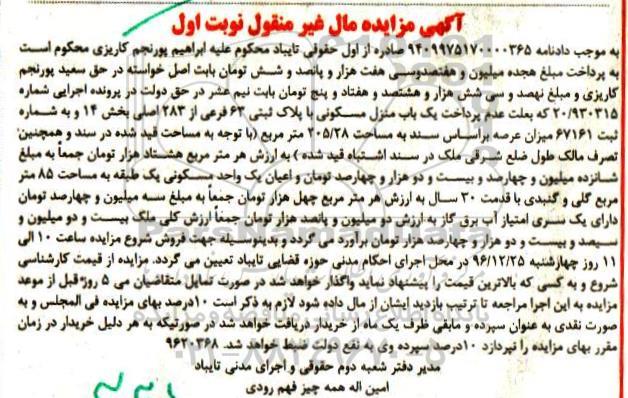 آگهی مزایده مال غیر منقول نوبت اول
به موجب دادنامه ۹۴۰۹۹۷۵۱۷۰۰۰۰۳۶۵ صادره از اول حقوقی تایباد محکوم علیه ابراهیم پورنجم کاریزی محکوم است
به پرداخت مبلغ هجده میلیون و هفتصدوسی هفت هزار و پانصد و شش تومان بابت اصل خواسته در حق سعید پورنجم
کاریزی و مبلغ نهصد و سی شش هزار و هشتصد و هفتاد و پنج تومان بابت نیم عشر در حق دولت در پرونده اجرایی شماره
۲۰/۹۳۰۳۱۵ که بعلت عدم پرداخت یک باب منزل مسکونی با پلاک ثبتی ۶۳ فرعی از ۲۸۳ اصلی بخش ۱۴ و به شماره
ثبت ۶۷۱۶۱ میزان عرصه براساس سند به مساحت ۲۰۵/۲۸ متر مربع (با توجه به مساحت قید شده در سند و همچنین
تصرف مالک طول ضلع شرقی ملک در سند اشتباه قید شده ) به ارزش هر متر مربع هشتاد هزار تومان جمعاً به مبلغ
شانزده میلیون و چهارصد و بیست و دو هزار و چهارصد تومان و اعیان یک واحد مسکونی یک طبقه به مساحت ۸۵ متر
مربع گلی و گنبدی با قدمت ۳۰ سال به ارزش هر متر مربع چهل هزار تومان جمعاً به مبلغ سه میلیون و چهارصد تومان
دارای یک سری امتیاز آب برق گاز به ارزش دو میلیون و پانصد هزار تومان جمعاً ارزش کلی ملک بیست و دو میلیون و
سیصد و بیست و دو هزار و چهارصد هزار تومان برآورد می گردد و بدینوسیله جهت فروش شروع مزایده ساعت ۱۰ الی
۱۱ روز چهارشنبه ۹۶/۱۲/۲۵ در محل اجرای احکام مدنی حوزه قضایی تایباد تعیین می گردد. مزایده از قیمت کارشناسی
شروع و به کسی که بالاترین قیمت را پیشنهاد نماید واگذار خواهد شد در صورت تمایل متقاضیان می ۵ روز قبل از موعد
مزایده به این اجرا مراجعه تا ترتیب بازدید ایشان از مال داده شود لازم به ذکر است ۱۰درصد بهای مزایده فی المجلس و به
صورت نقدی به عنوان سپرده و مابقی ظرف یک ماه از خریدار دریافت خواهد شد در صورتیکه به هر دلیل خریدار در زمان
مقرر بهای مزایده را نپردازد ۱۰درصد سپرده وی به نفع دولت ضبط خواهد شد. ۹۶۲۰۳۶۸
مدیر دفتر شعبه دوم حقوقی و اجرای مدنی تایباد
امین اله همه چیز فهم رودی